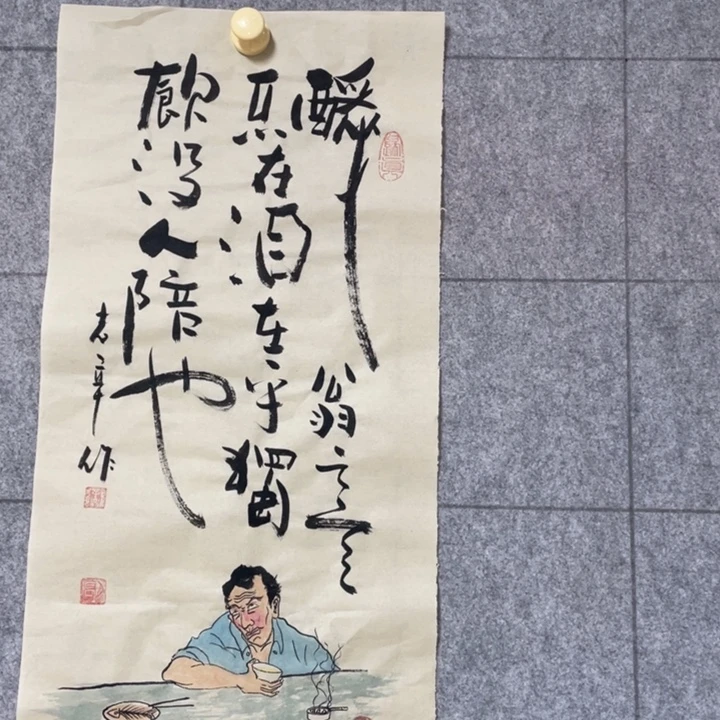 醉翁之意
不在酒在乎獨
飲没人陪也
志章作